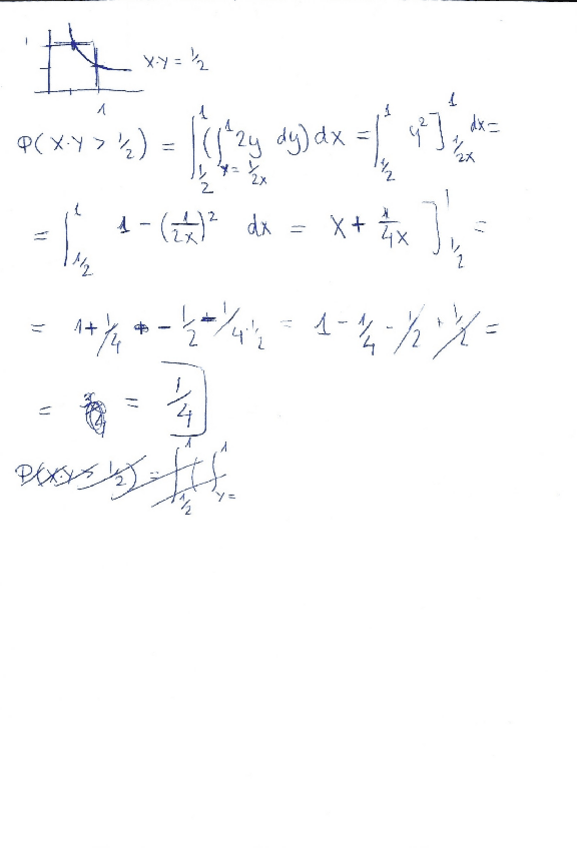 1
X·Y = 1/2
1
P(X·Y > 1/2) = ∫_{1/2}^{1} (∫_{y=1/2x}^{1} 2y dy) dx = ∫_{1/2}^{1} y²]_{1/2x}^{1} dx =
= ∫_{1/2}^{1} 1 - (1/2x)² dx = x + 1/4x ]_{1/2}^{1} =
= 1 + 1/4 - 1/2 - 1/4·1/2 = 1 - 1/4 - 1/2 + 1/2 =
= = 1/4
P(X·Y > 1/2) = ∫_{1/2}^{1} (∫_{y=}^{1}